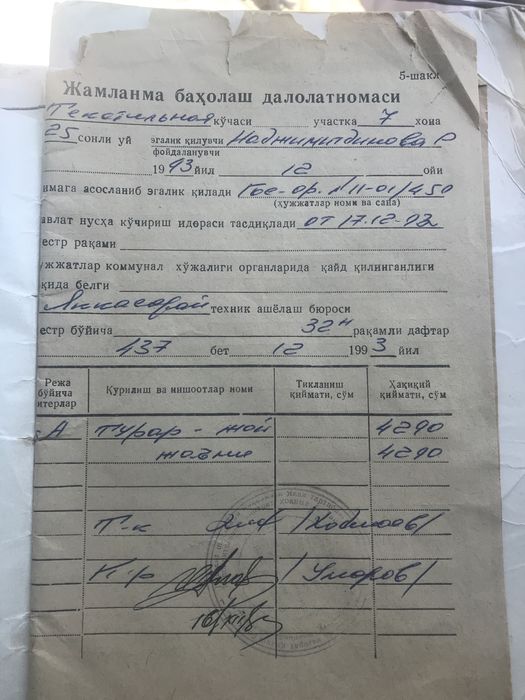 5-шакл
Жамланма баҳолаш далолатномаси
Текстильная кўчаси участка 7 хона
25 сонли уй эгалик қилувчи Наджимитдинова С
фойдаланувчи
1993 йил 12 ойи
имага асосланиб эгалик қилади Гос-ор. №11-01/450
(ҳужжатлар номи ва сана)
авлат нусха кўчириш идораси тасдиқлади от 17.12-92
естр рақами
ужжатлар коммунал хўжалиги органларида қайд қилинганлиги
қида белги
Яккасарой техник ашёлаш бюроси
естр бўйича 32н рақамли дафтар
437 бет 12 1993 йил
Режа бўйича итерлар Қурилиш ва иншоотлар номи Тикланиш қиймати, сўм Ҳақиқий қиймати, сўм
А турар - жой 4290
жаъми 4290
Т-к
К-р /Умаров/